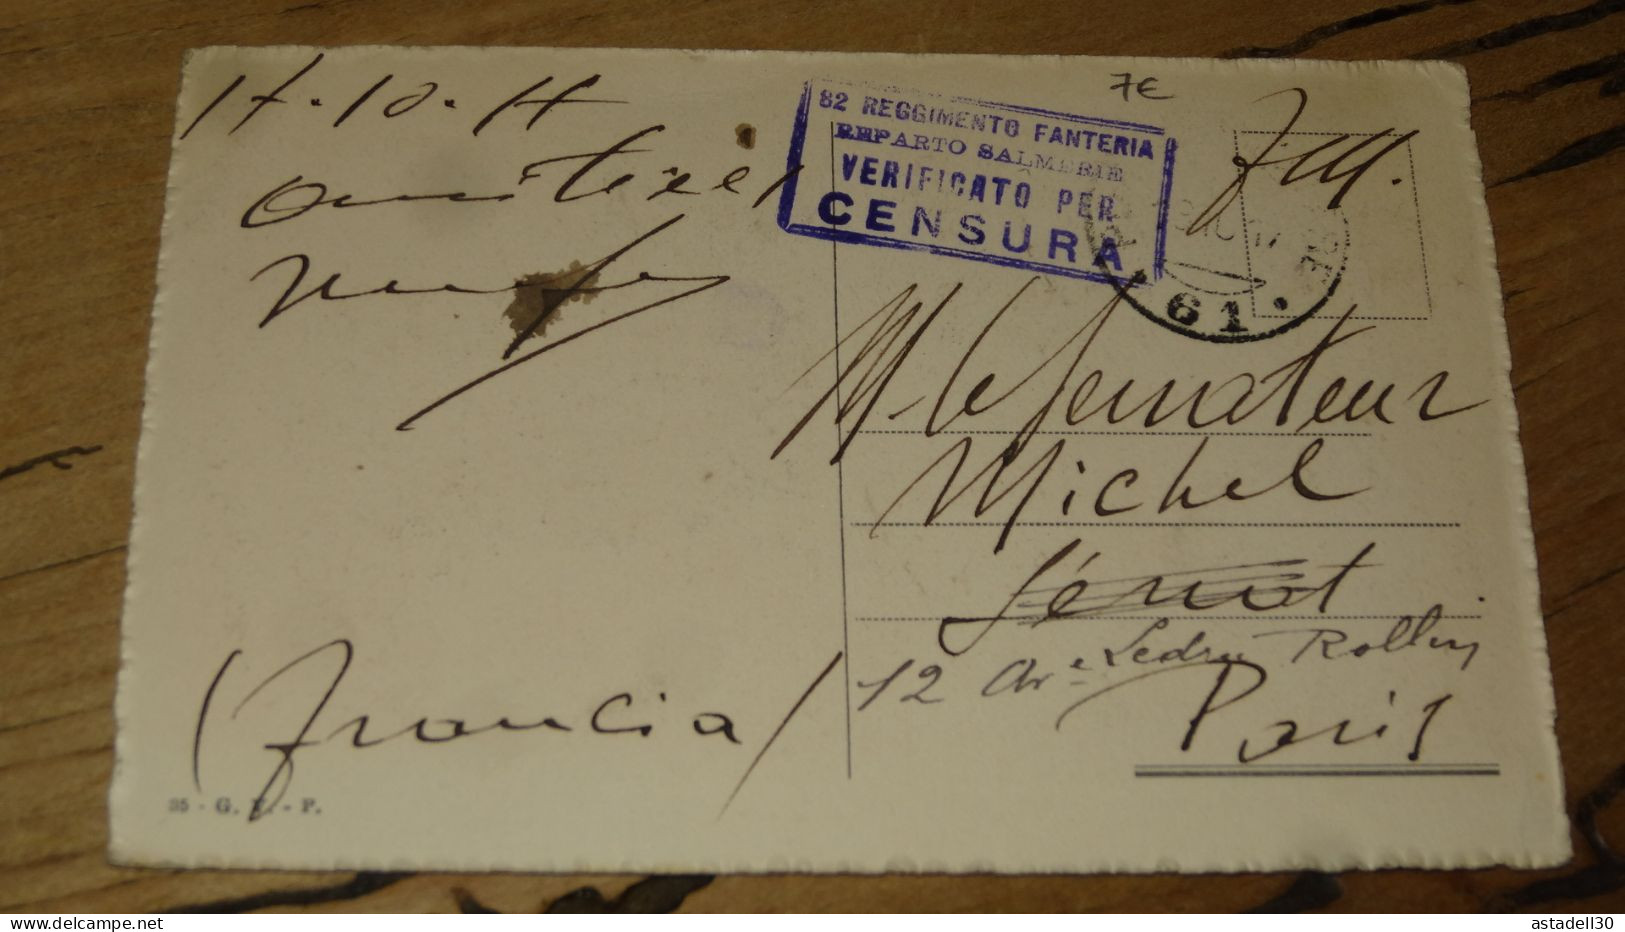 7€
17-10-17
82 REGGIMENTO FANTERIA
REPARTO SALMERIE
VERIFICATO PER
CENSURA
• 61 •
M. le Senateur
Michel
Sénat
12 Ave Ledru Rollin
Paris
(Francia)
35 - G. - P.
delcampe.net
astadell30